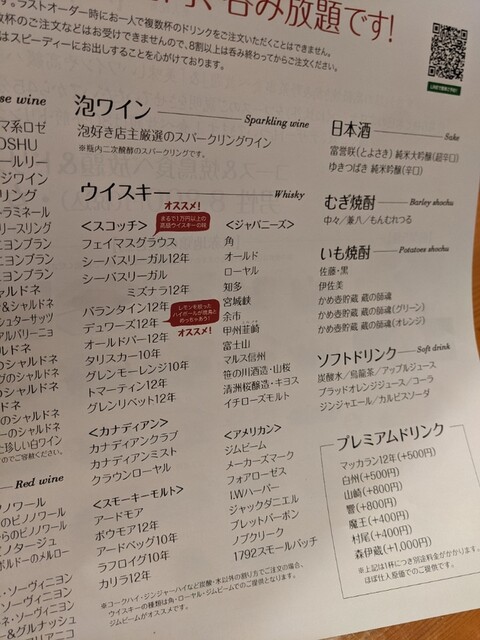 呑み放題です!
す。ラストオーダー時にお一人で複数杯のドリンクをご注文いただくことはできません。
数杯のご注文などはお受けできませんので、8割以上は呑み終わってからご注文ください。
はスピーディーにお出しすることを心がけております。
se wine
マ系ロゼ
OSHU
ールリー
ジワイン
リング
ーラミネール
リースリング
ニヨンブラン
ニヨンブラン
ニヨンブラン
ャルドネ
&シャルドネ
シュターサッツ
アルバリーニョ
ルドネ
のシャルドネ
ヴのシャルドネ
のシャルドネ
ドネ
ーのシャルドネ
た珍しい白ワイン
のでご容赦ください。
Red wine
ノワール
のピノワール
からのピノワール
ピノタージュ
ボルドーのメルロー
・ソーヴィニヨン
・ソーヴィニヨン
ネ・ソーヴィニヨン
ー&グルナッシュ
アリアニコ
泡ワイン Sparkling wine
泡好き店主厳選のスパークリングワイン
※瓶内二次醗酵のスパークリングです。
ウイスキー Whisky
オススメ!
<スコッチ>
まるで1万円以上の
高級ウイスキーの味
フェイマスグラウス
シーバスリーガル12年
シーバスリーガル
ミズナラ12年
バランタイン12年
デュワーズ12年
レモンを絞った
ハイボールが唐揚と
めっちゃあう!
オススメ!
オールドパー12年
タリスカー10年
グレンモーレンジ10年
トマーティン12年
グレンリベット12年
<カナディアン>
カナディアンクラブ
カナディアンミスト
クラウンローヤル
<スモーキーモルト>
アードモア
ボウモア12年
アードベッグ10年
ラフロイグ10年
カリラ12年
<ジャパニーズ>
角
オールド
ローヤル
知多
宮城峡
余市
甲州韮崎
富士山
マルス信州
笹の川酒造・山桜
清洲桜醸造・キヨス
イチローズモルト
<アメリカン>
ジムビーム
メーカーズマーク
フォアローゼス
I.Wハーパー
ジャックダニエル
ブレットバーボン
ノブクリーク
1792スモールバッチ
※コークハイ・ジンジャーハイなど炭酸・水以外の割り方でご注文の場合、
ウイスキーの種類は角・ローヤル・ジムビームでのご提供となります。
ジムビームがオススメです。
日本酒 Sake
富誉咲(とよさき) 純米大吟醸(超辛口)
ゆきつばき 純米吟醸(辛口)
むぎ焼酎 Barley shochu
中々/兼八/もんむれつる
いも焼酎 Potatoes shochu
佐藤・黒
伊佐美
かめ壺貯蔵 蔵の師魂
かめ壺貯蔵 蔵の師魂(グリーン)
かめ壺貯蔵 蔵の師魂(オレンジ)
ソフトドリンク Soft drink
炭酸水/烏龍茶/アップルジュース
ブラッドオレンジジュース/コーラ
ジンジャエール/カルピスソーダ
プレミアムドリンク
マッカラン12年(+500円)
白州(+500円)
山崎(+800円)
響(+800円)
魔王(+400円)
村尾(+400円)
森伊蔵(+1,000円)
※上記は1杯につき別途料金がかかります。
ほぼ仕入原価でのご提供です。